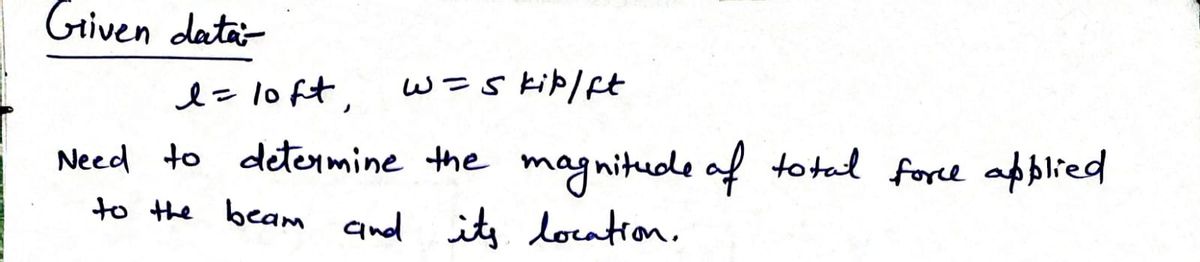 Given data:-
l = 10 ft, w = 5 kip/ft
Need to determine the magnitude of total force applied
to the beam and its location.